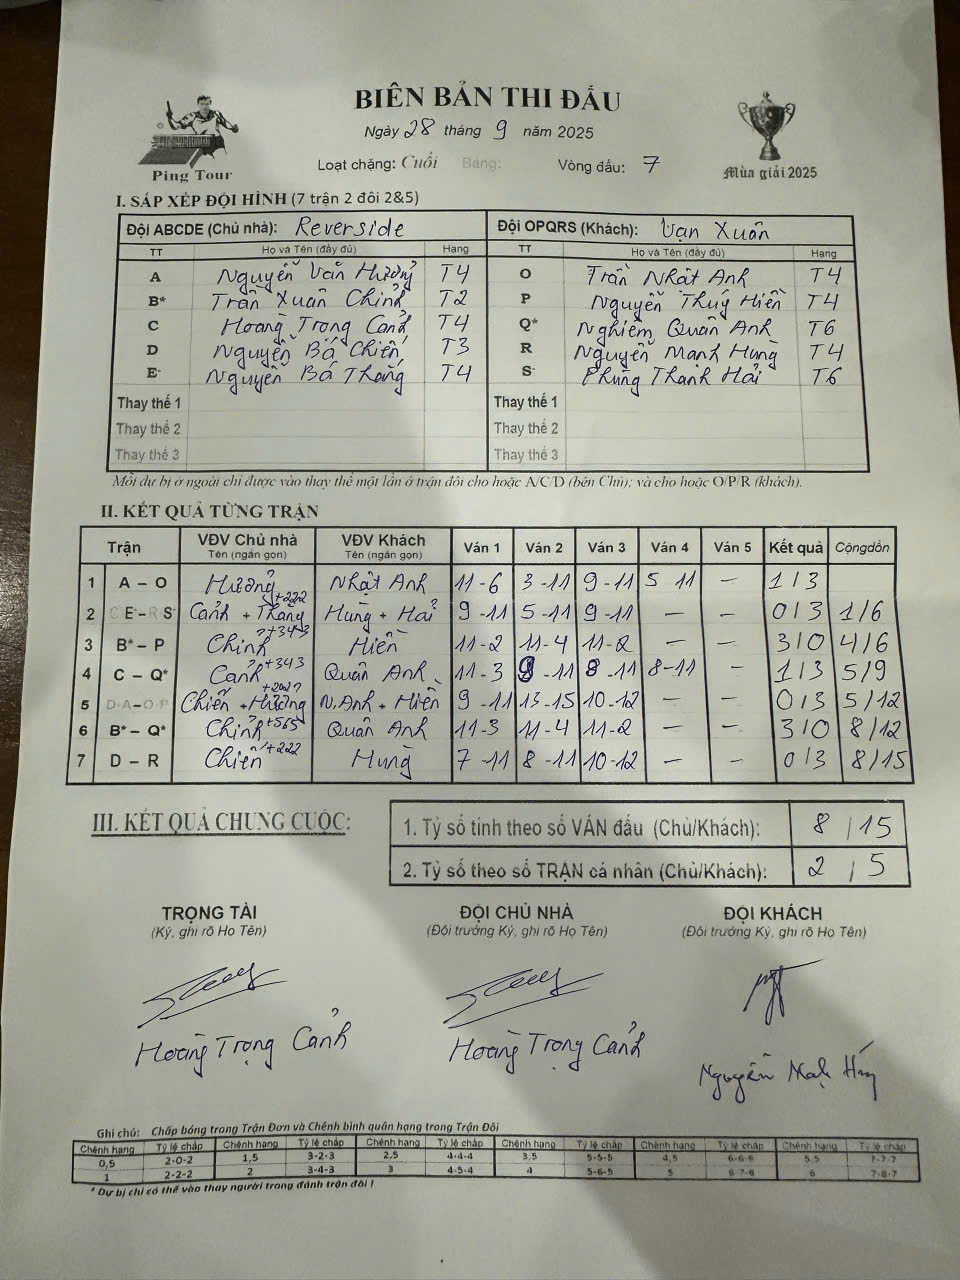 BIÊN BẢN THI ĐẤU
Ngày 28 tháng 9 năm 2025
Ping Tour
Loạt chặng: Cuối Bảng: Vòng đấu: 7
Mùa giải 2025
I. SẮP XẾP ĐỘI HÌNH (7 trận 2 đôi 2&5)
Đội ABCDE (Chủ nhà): Reverside Đội OPQRS (Khách): Vạn Xuân
TT Họ và Tên (đầy đủ) Hạng TT Họ và Tên (đầy đủ) Hạng
A Nguyễn Văn Hưởng T4 O Trần Nhật Anh T4
B* Trần Xuân Chinh T2 P Nguyễn Thuý Hiền T4
C Hoàng Trọng Cảnh T4 Q* Nghiêm Quân Anh T6
D Nguyễn Bá Chiến T3 R Nguyễn Mạnh Hùng T4
E- Nguyễn Bá Thắng T4 S- Phùng Thanh Hải T6
Thay thế 1 Thay thế 1
Thay thế 2 Thay thế 2
Thay thế 3 Thay thế 3
Mỗi dự bị ở ngoài chỉ được vào thay thế một lần ở trận đôi cho hoặc A/C/D (bên Chủ); và cho hoặc O/P/R (khách).
II. KẾT QUẢ TỪNG TRẬN
Trận VĐV Chủ nhà Tên (ngắn gọn) VĐV Khách Tên (ngắn gọn) Ván 1 Ván 2 Ván 3 Ván 4 Ván 5 Kết quả Cộngdồn
1 A – O Hưởng Nhật Anh 11-6 3-11 9-11 5 11 – 1/3
2 C E- – R S- Cảnh + Thắng +222 Hùng + Hải 9-11 5-11 9-11 – – 0/3 1/6
3 B* – P Chinh +343 Hiền 11-2 11-4 11-2 – – 3/0 4/6
4 C – Q* Cảnh +343 Quân Anh 11-3 9-11 8-11 8-11 – 1/3 5/9
5 D-A – O-P Chiến + Hưởng N.Anh + Hiền 9-11 13-15 10-12 – – 0/3 5/12
6 B* – Q* Chinh +565 Quân Anh 11-3 11-4 11-2 – – 3/0 8/12
7 D – R Chiến +222 Hùng 7-11 8-11 10-12 – – 0/3 8/15
III. KẾT QUẢ CHUNG CUỘC:
1. Tỷ số tính theo số VÁN đấu (Chủ/Khách): 8/15
2. Tỷ số theo số TRẬN cá nhân (Chủ/Khách): 2/5
TRỌNG TÀI ĐỘI CHỦ NHÀ ĐỘI KHÁCH
(Ký, ghi rõ Họ Tên) (Đội trưởng Ký, ghi rõ Họ Tên) (Đội trưởng Ký, ghi rõ Họ Tên)
Hoàng Trọng Cảnh Hoàng Trọng Cảnh Nguyễn Mạnh Hùng
Ghi chú: Chấp bóng trong Trận Đơn và Chênh bình quân hạng trong Trận Đôi
Chênh hạng Tỷ lệ chấp Chênh hạng Tỷ lệ chấp Chênh hạng Tỷ lệ chấp Chênh hạng Tỷ lệ chấp Chênh hạng Tỷ lệ chấp Chênh hạng Tỷ lệ chấp
0,5 2-0-2 1,5 3-2-3 2,5 4-4-4 3,5 5-5-5 4,5 6-6-6 5,5 7-7-7
1 2-2-2 2 3-4-3 3 4-5-4 4 5-6-5 5 6-7-6 6 7-8-7
* Dự bị chỉ có thể vào thay người trong đánh trận đôi !